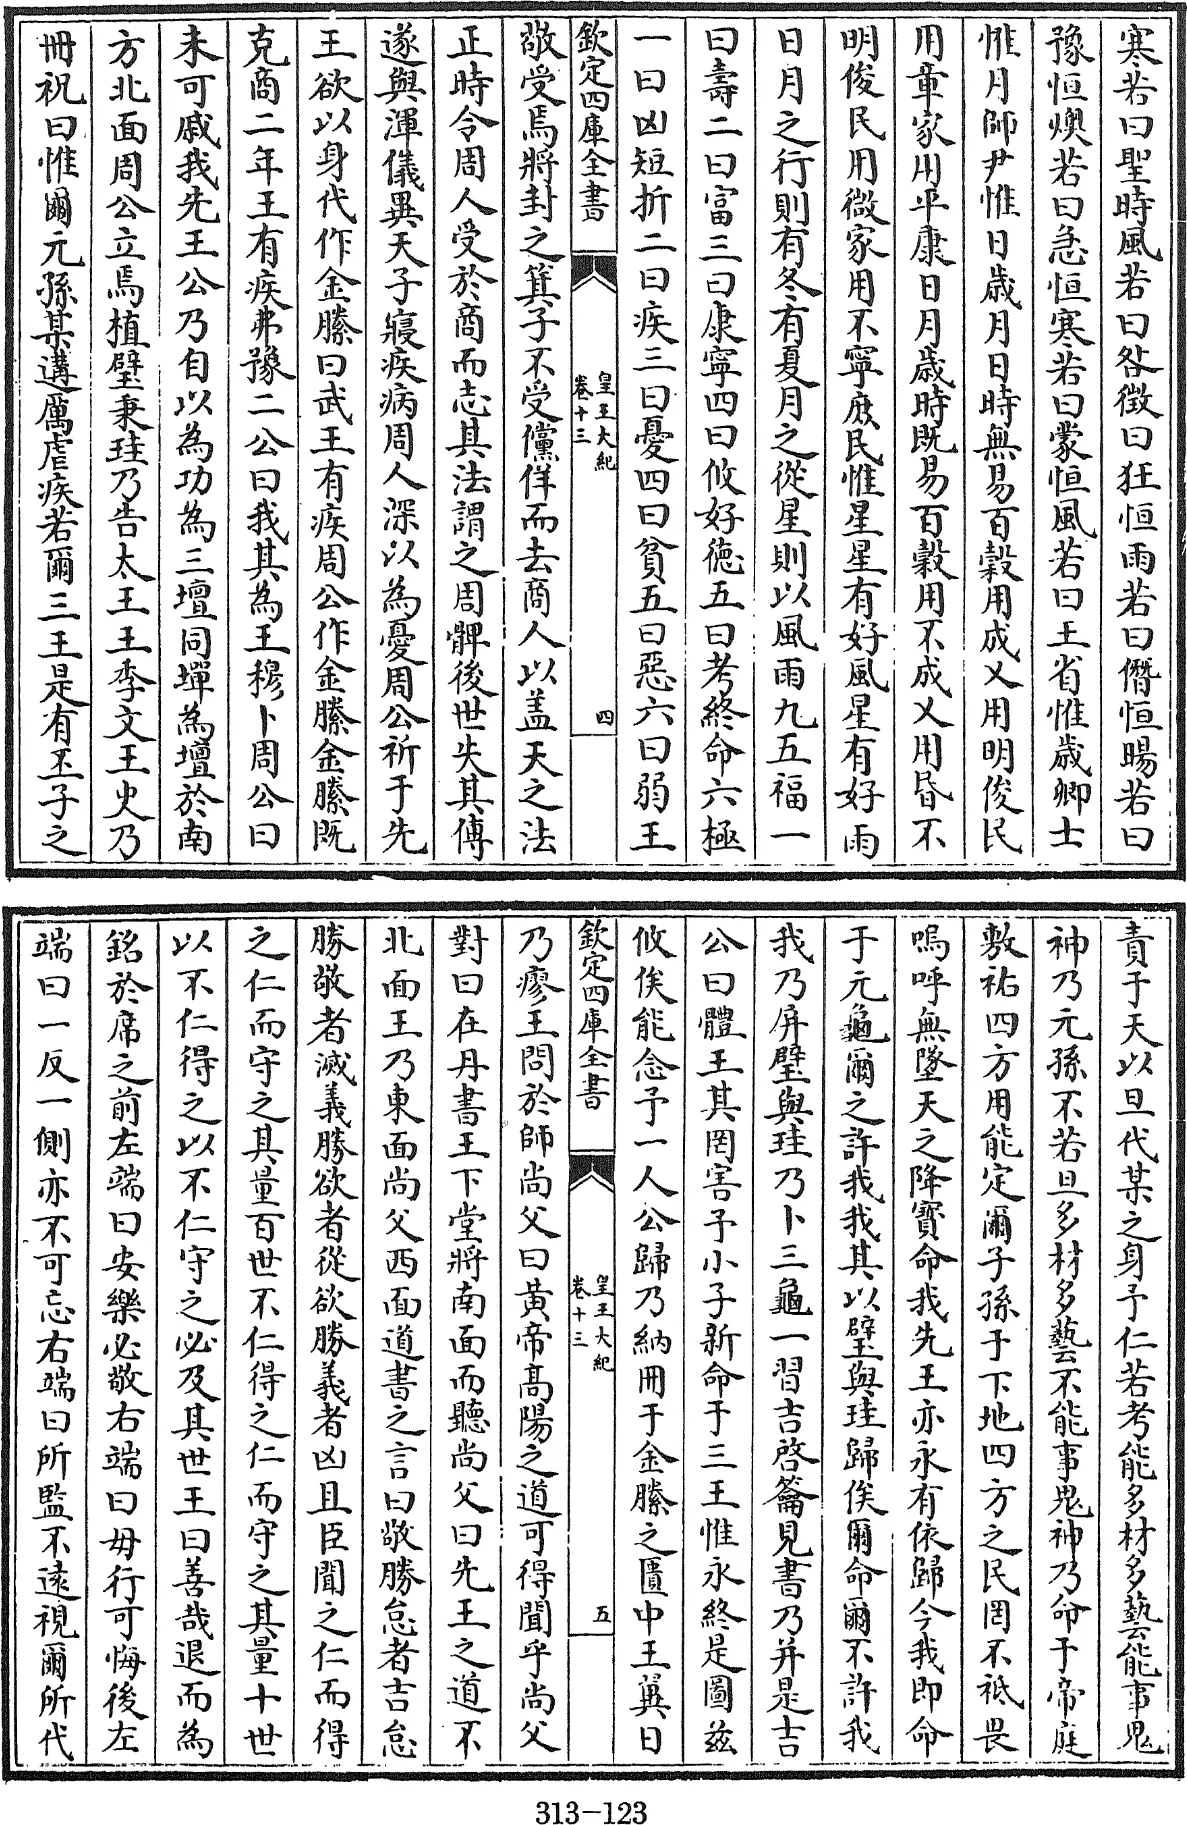 寒若曰聖時風若曰咎徴曰狂恒雨若曰僭恒暘若曰
豫恒燠若曰急恒寒若曰蒙恒風若曰王省惟歲卿士
惟月師尹惟日歲月日時無易百穀用成乂用明俊民
用章家用平康日月歲時既易百穀用不成乂用昏不
明俊民用微家用不寧庶民惟星星有好風星有好雨
日月之行則有冬有夏月之從星則以風雨九五福一
曰壽二曰富三曰康寧四曰攸好德五曰考終命六極
一曰凶短折二曰疾三曰憂四曰貧五曰惡六曰弱王
欽定四庫全書
皇王大紀
卷十三
四
敬受焉將封之箕子不受儻佯而去商人以蓋天之法
正時令周人受於商而志其法謂之周髀後世失其傳
遂與渾儀異天子寢疾病周人深以為憂周公祈于先
王欲以身代作金縢曰武王有疾周公作金縢金縢既
克商二年王有疾弗豫二公曰我其為王穆卜周公曰
未可戚我先王公乃自以為功為三壇同墠為壇於南
方北面周公立焉植璧秉珪乃告太王王季文王史乃
冊祝曰惟爾元孫某遘厲虐疾若爾三王是有丕子之
責于天以旦代某之身予仁若考能多材多藝能事鬼
神乃元孫不若旦多材多藝不能事鬼神乃命于帝庭
敷祐四方用能定爾子孫于下地四方之民罔不祗畏
嗚呼無墜天之降寶命我先王亦永有依歸今我即命
于元龜爾之許我我其以璧與珪歸俟爾命爾不許我
我乃屏璧與珪乃卜三龜一習吉啓籥見書乃并是吉
公曰體王其罔害予小子新命于三王惟永終是圖茲
攸俟能念予一人公歸乃納冊于金縢之匱中王翼日
欽定四庫全書
皇王大紀
卷十三
五
乃瘳王問於師尚父曰黃帝高陽之道可得聞乎尚父
對曰在丹書王下堂將南面而聽尚父曰先王之道不
北面王乃東面尚父西面道書之言曰敬勝怠者吉怠
勝敬者滅義勝欲者從欲勝義者凶且臣聞之仁而得
之仁而守之其量百世不仁得之仁而守之其量十世
以不仁得之以不仁守之必及其世王曰善哉退而為
銘於席之前左端曰安樂必敬右端曰毋行可悔後左
端曰一反一側亦不可忘右端曰所監不遠視爾所代
313-123